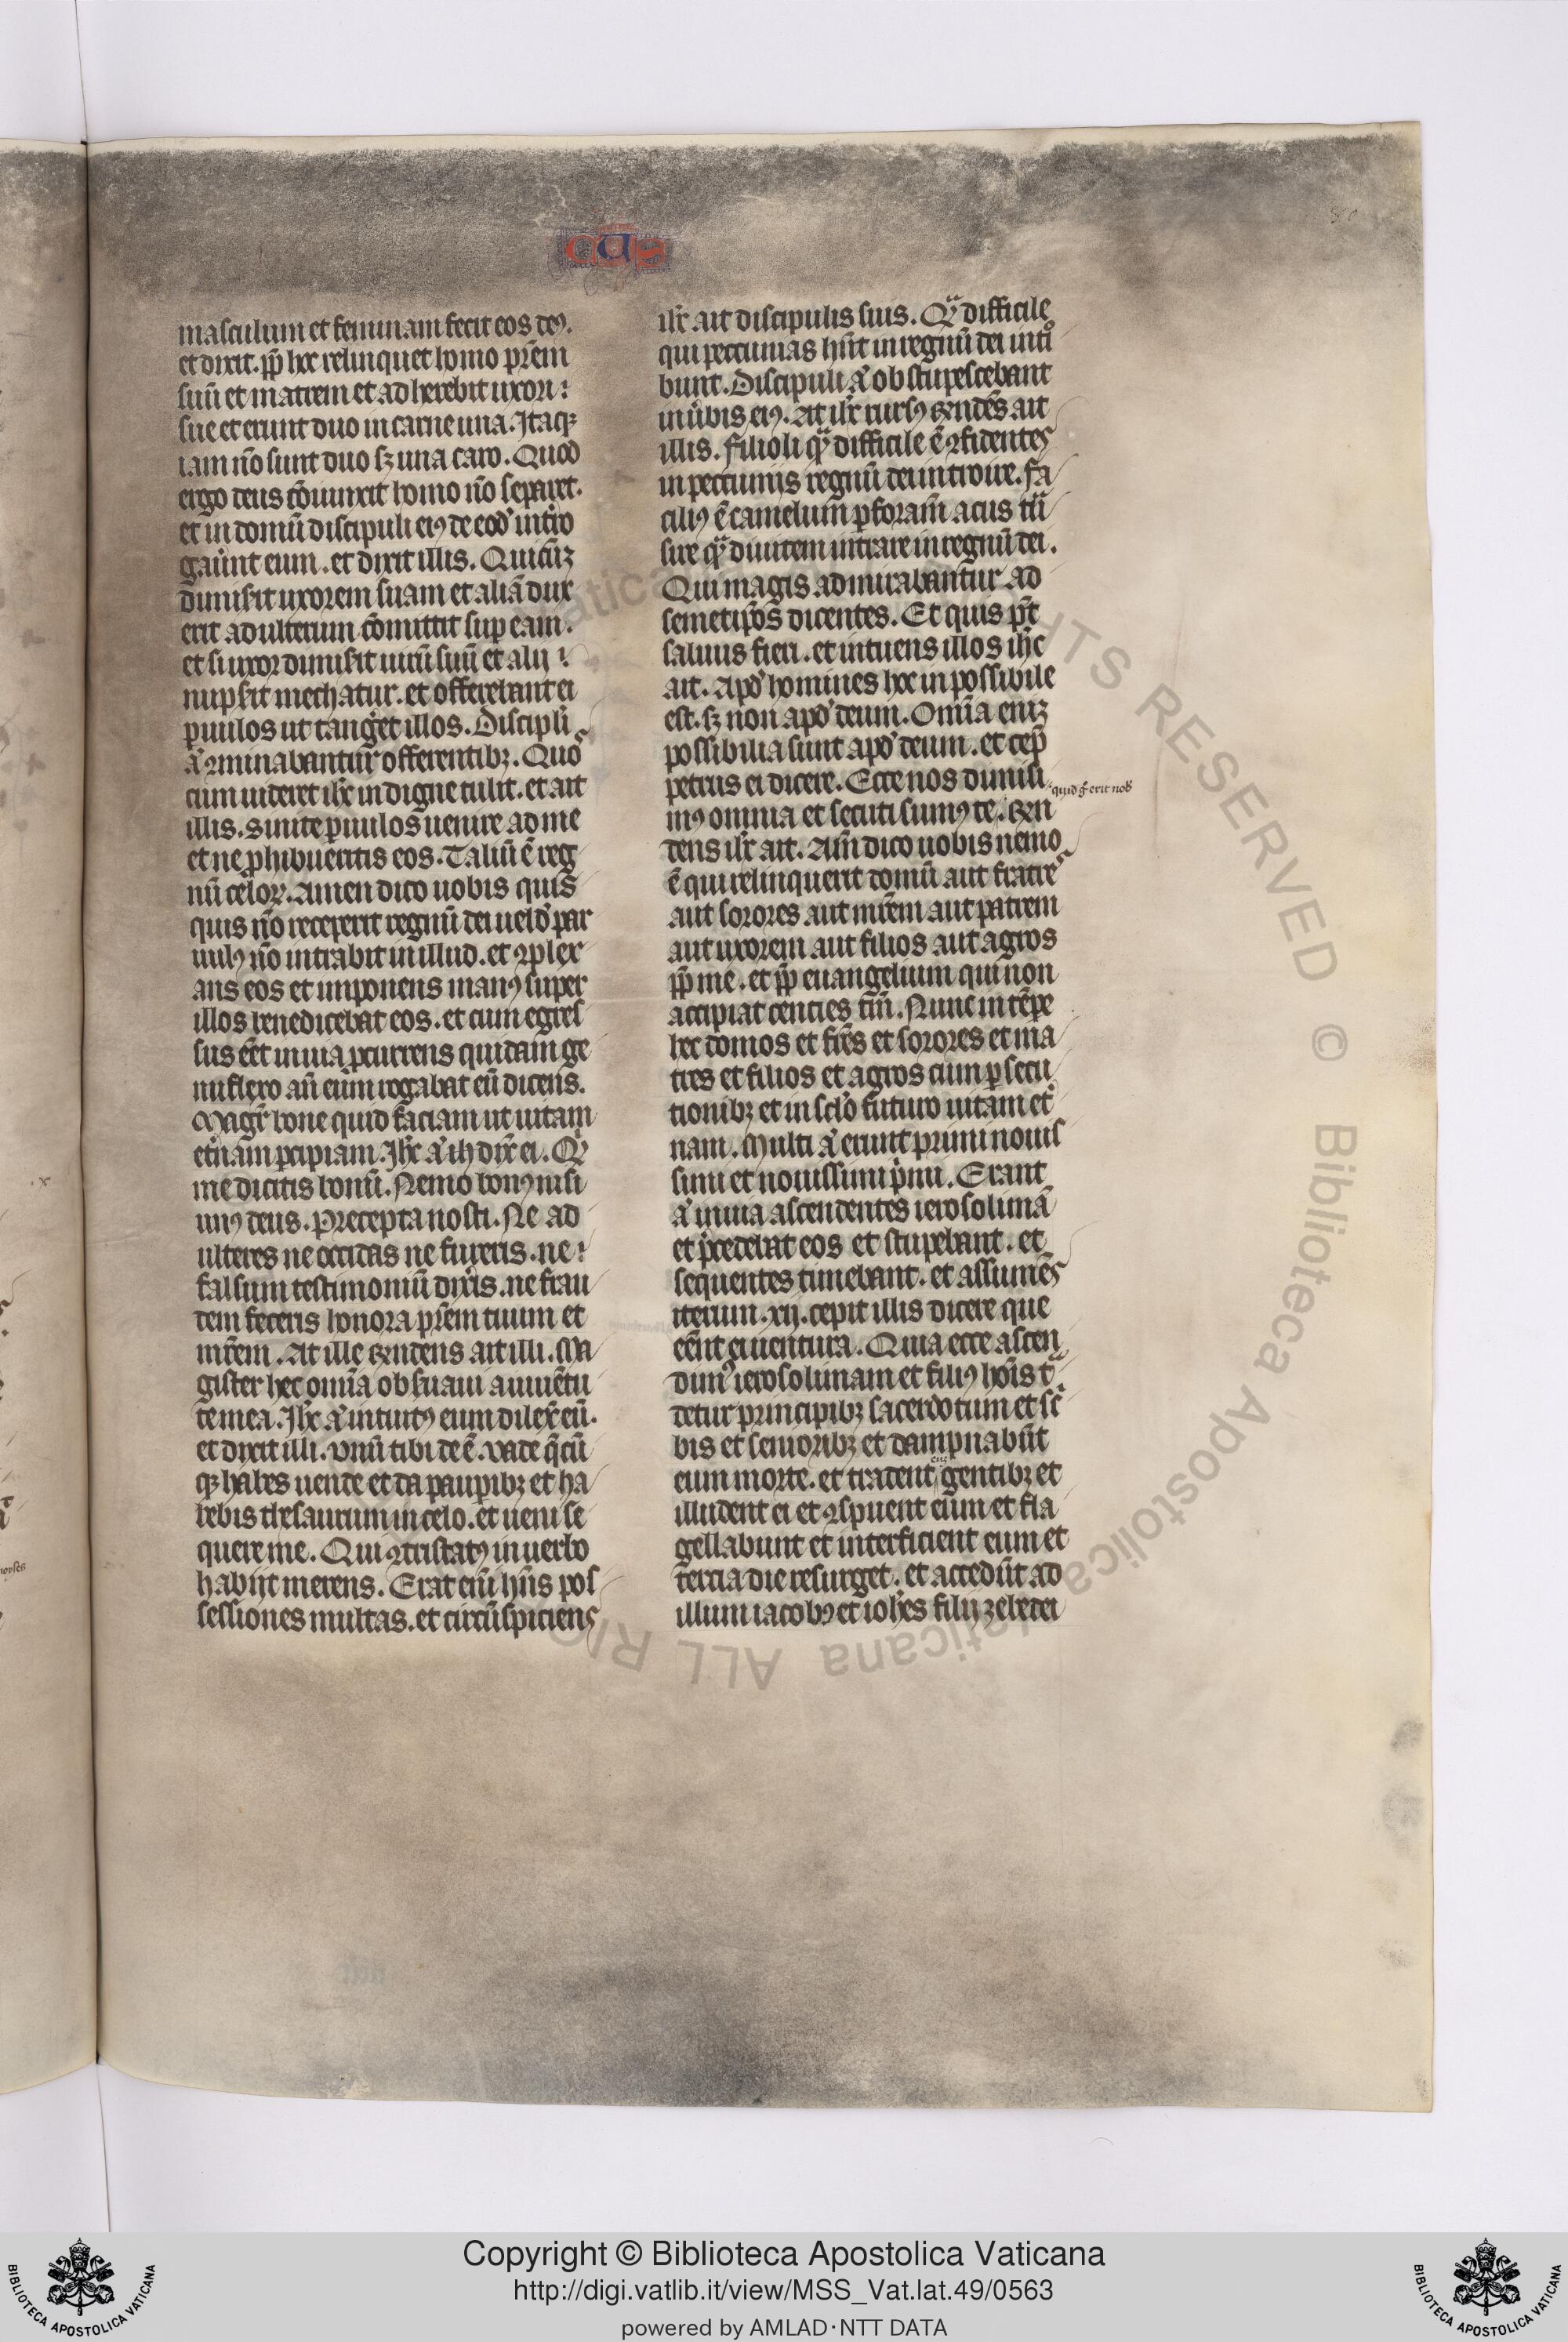 cus
masculum et feminam fecit eos deꝰ.
et dixit. ꝓp̄ hec relinquet homo pr̄em
suū et matrem et adherebit uxori
sue et erunt duo in carne una. Itaqꝫ
iam nō sunt duo sꝫ una caro. Quod
ergo deus cōiunxit homo nō separet.
et in domū discipuli eiꝰ de eod̓ int̓ro
gauūnt eum. et dixit illis. Quicūꝫ
dimisit uxorem suam et aliā dux
erit adulterium cōmittit suꝑ eam.
et si uxor dimisit uirū suū et alij
nupsit mechatur. et offerebant ei
ꝑuulos ut tangeret illos. Discipli
a̓ ꝯminabantur offerentibꝫ. Quos
cum uideret ih̄c indigne tulit. et ait
illis. Sinite ꝑuulos uenire ad me
et ne ꝓhibueritis eos. Taliū ē reg
nū celoꝝ. Amen dico uobis quis
quis nō receperit regnū dei uelud par
uulꝰ nō intrabit in illud. et ꝯplex
ans eos et imponens manꝰ super
illos benedicebat eos. et cum egres
sus eēt in uia ꝓcurrens quidam ge
nu flexo an̄ eum rogabat eū dicens.
Magr̄ bone quid faciam ut uitam
et̓nam ꝑcipiam. Ih̄c a̓ ih̄ dix̄ ei. Qͥ
me dicitis bonū. Nemo bonꝰ nisi
unꝰ deus. Precepta nosti. Ne ad
ulteres ne occidas ne fureris. ne
falsum testimoniū dixīs. ne frau
dem feceris honora pr̄em tuum et
mr̄em. At ille rn̄dens ait illi. Ma
gister hec omīa obseruaui a iuuētu
te mea. Ih̄c a̓ intuitꝰ eum dilex̄ eū.
et dixit illi. Unū tibi deē. Uade q̄cū
qꝫ habes uende et da pauꝑibꝫ et ha
bebis thesaurum in celo. et ueni se
quere me. Qui ꝯtristatꝰ in uerbo
habijt merens. Erat enī hn̄s pos
sessiones multas. et circūspiciens
ih̄c ait discipulis suis. Qᷓ difficile
qui peccunias hn̄t in regnū dei int̓i
bunt. Discipuli a̓ obstupescebant
in ūbis eiꝰ. At ih̄c rursꝰ rn̄dēs ait
illis. Filioli qᷓ difficile ē ꝯfidentes
in peccunijs regnū dei introire. Fa
ciliꝰ ē camelum ꝑ foramē acus trᷓn
sire qᷓ diuitem intrare in regnū dei.
Qui magis admirabantur ad
semetip̄os dicentes. Et quis pt̄
saluus fieri. et intuens illos ih̄c
ait. Apd̓ homines hoc inpossibile
est. sꝫ non apd̓ deum. Omīa enīꝫ
possibilia sunt apd̓ deum. et cep̄
petrus ei dicere. Ecce nos dimisi
quid g̊ erit nob̄
mꝰ omnia et secuti sumꝰ te. Rn̄
dens ih̄c ait. Am̄ dico uobis nemo
ē qui relinquerit domū aut fratres
aut sorores aut mr̄em aut patrem
aut uxorem aut filios aut agros
ꝓp̄ me. et ꝓp̄ euangelium qui non
accipiat centies tm̄. Nunc in tēpe
hec domos et fr̄es et sorores et ma
tres et filios et agros cum ꝑsecu
tionibꝫ et in sc̄lo futuro uitam et̓
nam. Multi a̓ erunt primi nouis
simi et nouissimi p̓mi. Erant
a̓ in uia ascendentes ierosolimā
et p̄cedebat eos et stupebant. et
sequentes timebant. et assumēs
iterum .xij. cepit illis dicere que
eēnt ei uentura. Quia ecce ascen
dimꝰ ierosolimam et filiꝰ hoīs tᷓ
detur principibꝫ sacerdotum et sc̓
bis et senioribꝫ et dampnabūt
eum morte. et tradent eū gentibꝫ et
illudent ei et ꝯspuent eum et fla
gellabunt et interficient eum et
tertia die resurget. et accedūt ad
illum iacobꝰ et ioh̄es filij zebedei
Copyright © Biblioteca Apostolica Vaticana
http://digi.vatlib.it/view/MSS_Vat.lat.49/0563
powered by AMLAD·NTT DATA